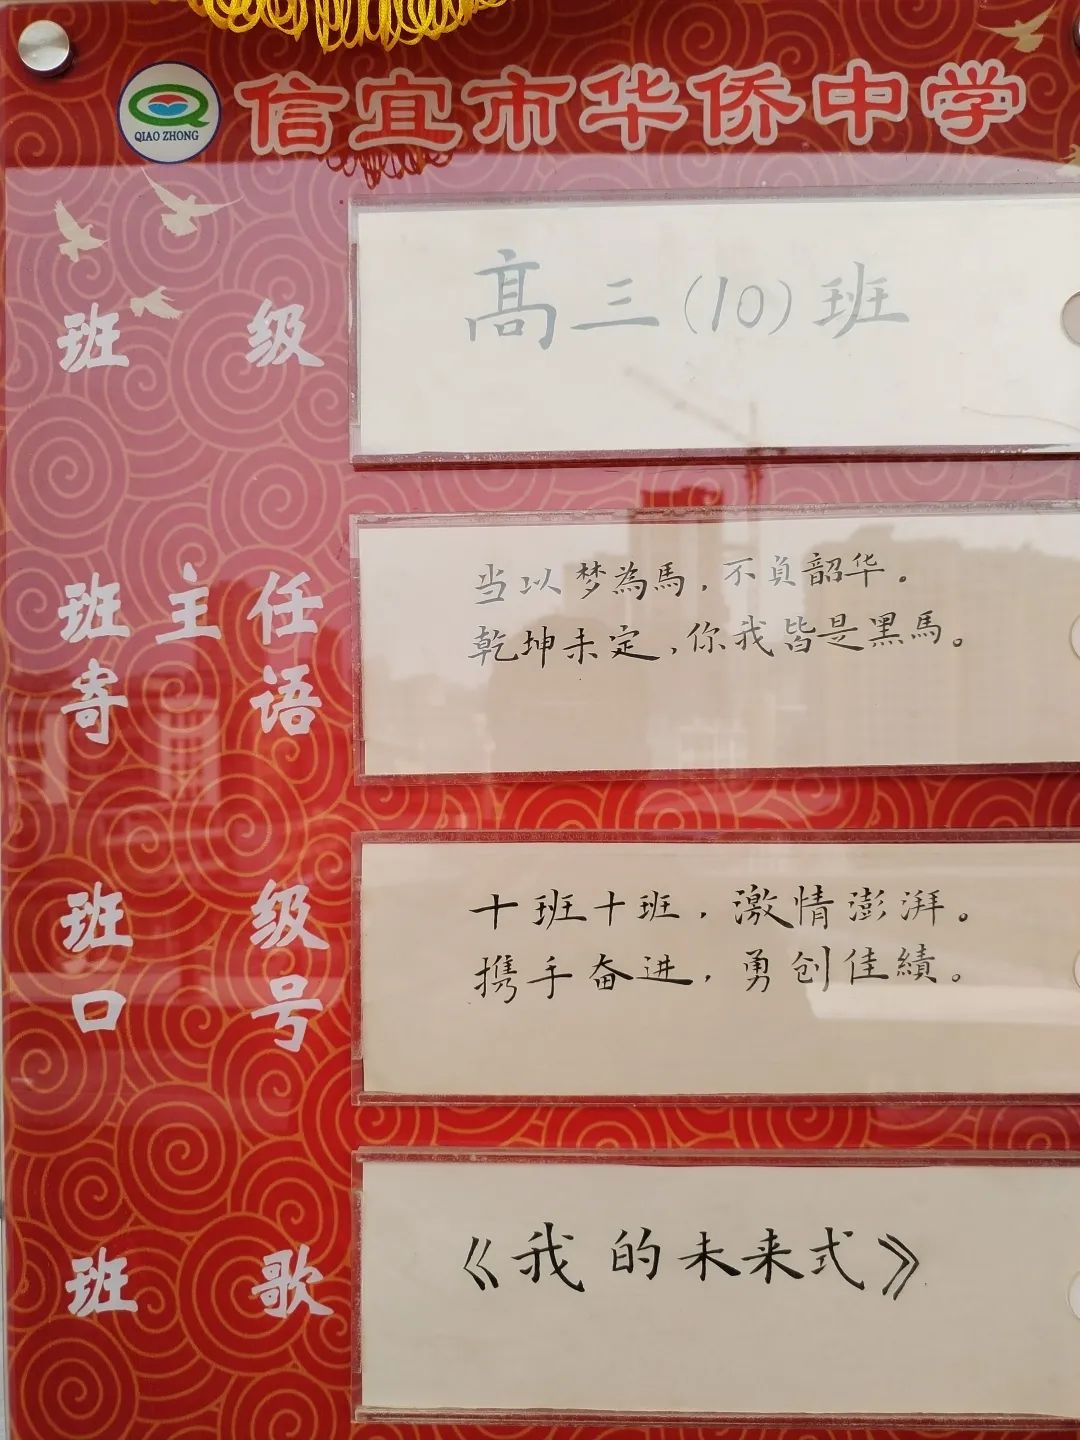 QIAO ZHONG
信宜市华侨中学
班级
高三(10)班
班主任
寄语
当以梦為馬，不負韶华。
乾坤未定，你我皆是黑馬。
班级
口号
十班十班，激情澎湃。
携手奋进，勇创佳績。
班歌
《我的未来式》